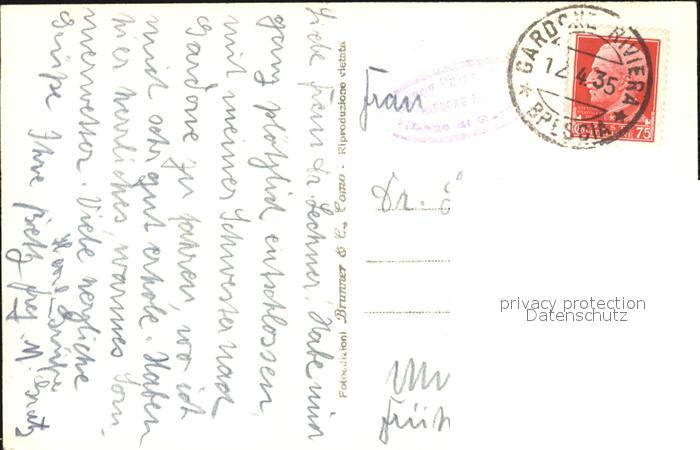 Liebe Frau Dr. Lechner! Habe mich
ganz plötzlich entschlossen,
mit meiner Schwester nach
Gardone zu fahren, wo ich
mich sehr gut erhole. Haben
hier herrliches, warmes Som-
merwetter. Viele herzliche
Grüße Ihre
Fotoedizioni Brunner & C., Como - Riproduzione vietata
Frau
Dr.
GARDONE RIVIERA
12.4.35
BRESCIA
75
Lago di
privacy protection
Datenschutz